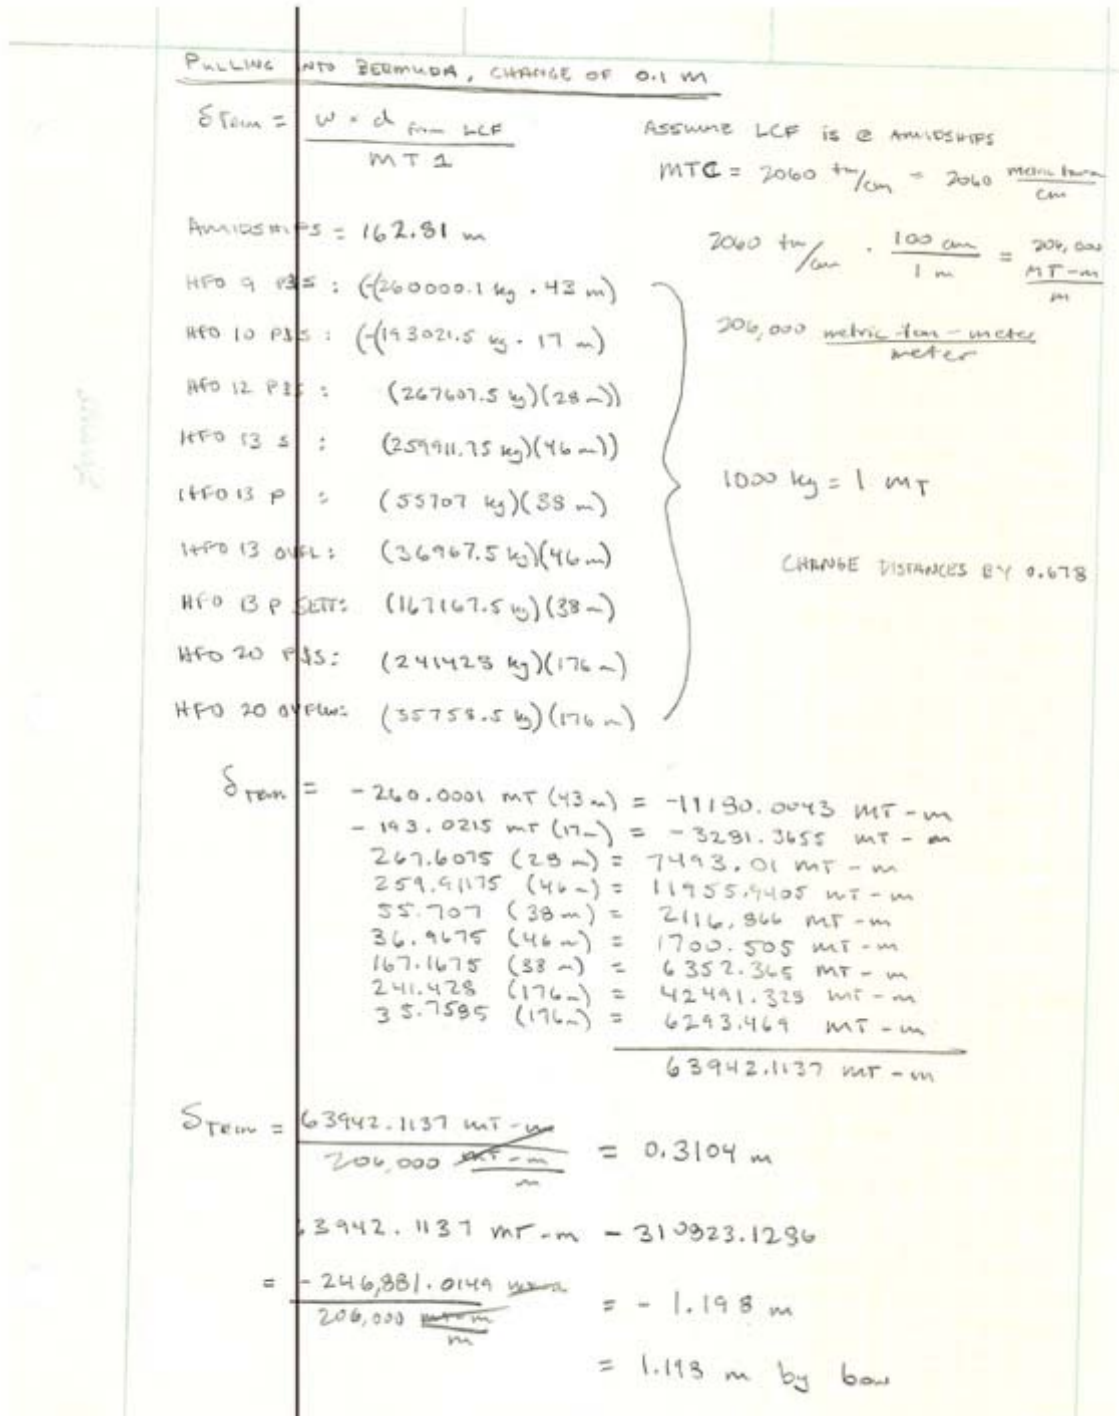 PULLING INTO BERMUDA, CHANGE OF 0.1 m
δTRIM = w × d from LCF / MT 1
ASSUME LCF is @ AMIDSHIPS
MTC = 2060 tm/cm = 2060 metric tons/cm
AMIDSHIPS = 162.81 m
2060 tm/cm · 100 cm / 1 m = 206,000 MT-m / m
HFO 9 P&S : (-(260000.1 kg · 43 m)
HFO 10 P&S : (-(193021.5 kg · 17 m)
206,000 metric-ton-meter / meter
HFO 12 P&S : (267607.5 kg)(28 m))
HFO 13 S : (259911.75 kg)(46 m))
HFO 13 P : (55707 kg)(38 m)
1000 kg = 1 MT
HFO 13 OVFL: (36967.5 kg)(46 m)
CHANGE DISTANCES BY 0.678
HFO 13 P SETT: (167167.5 kg)(38 m)
HFO 20 P&S: (241428 kg)(176 m)
HFO 20 OVFLW: (35758.5 kg)(176 m)
δTRIM = - 260.0001 MT (43 m) = -11180.0043 MT-m
- 193.0215 MT (17m) = -3281.3655 MT-m
267.6075 (28 m) = 7493.01 MT-m
259.91175 (46 m) = 11955.9405 MT-m
55.707 (38 m) = 2116.866 MT-m
36.9675 (46 m) = 1700.505 MT-m
167.1675 (38 m) = 6352.365 MT-m
241.428 (176m) = 42491.328 MT-m
35.7585 (176m) = 6293.469 MT-m
63942.1137 MT-m
δTRIM = 63942.1137 MT-m / 206,000 MT-m/m = 0.3104 m
63942.1137 MT-m - 310823.1286
= - 246,881.0149 / 206,000 MT-m/m = - 1.198 m
= 1.198 m by bow